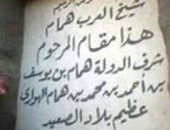 شيخ العرب همام
هذا مقام المرحوم
شرف الدولة همام بن يوسف
بن أحمد بن محمد بن همام الهواري
عظيم بلاد الصعيد